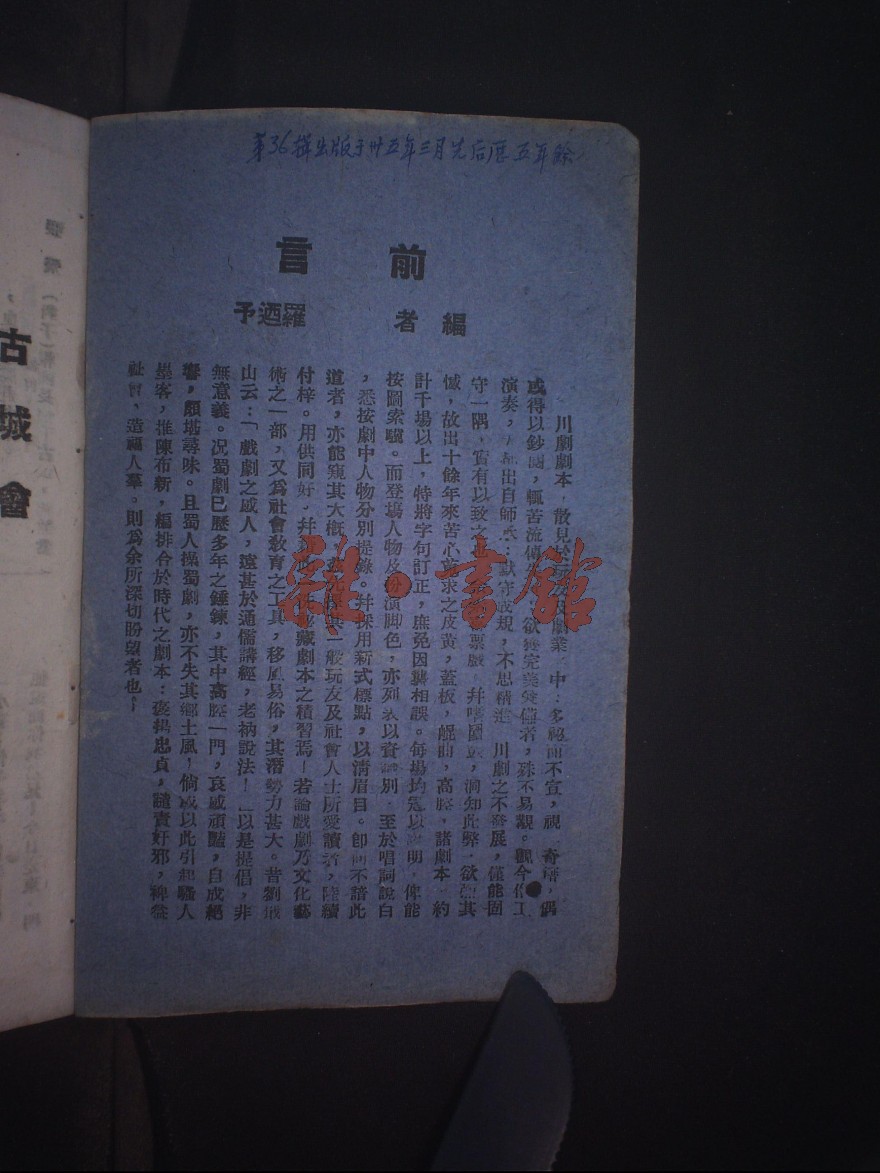 第36輯出版于卅五年三月先后歷五年餘
前言
編者 羅迺予
川劇劇本,散見於 劇業 中:多秘而不宣,視 奇 ,偶
或得以鈔 ,輒苦流傳 欲 完美 備者,殊不易覯。觀今伶工
演奏, 出自師 :獻守故規,不思精進 川劇之不發展,僅能固
守一隅,實有以致 票戲,幷嗜 ,洞知此弊,欲 其
憾,故出十餘年來苦心 求之皮黃,蓋板,崐曲,高腔,諸劇本,約
計千場以上,特將字句訂正,庶免因襲相誤。每場均冠以 明,俾能
按圖索驥。而登場人物及 演脚色,亦列表以資識別,至於唱詞說白
,悉按劇中人物分別提錄。幷採用新式標點,以清眉目。卽 不諳此
道者,亦能窺其大概 一般玩友及社會人士所愛讀者,陸續
付梓。用供同好。幷 藏劇本之積習焉!若論戲劇乃文化藝
術之一部,又爲社會敎育之工具,移風易俗,其潛勢力甚大。昔劉蕺
山云:「戲劇之感人,遠甚於通儒講經,老衲說法!」以是提倡,非
無意義。况蜀劇已歷多年之錘鍊,其中高腔一門,哀感頑豔,自成絕
響,頗堪尋味。且蜀人操蜀劇,亦不失其鄉土風!倘或以此引起騷人
墨客,推陳布新,編排合於時代之劇本:褒揚忠貞,譴責奸邪,裨益
社會,造福人羣。則爲余所深切盼望者也!
古城會
雜·書館